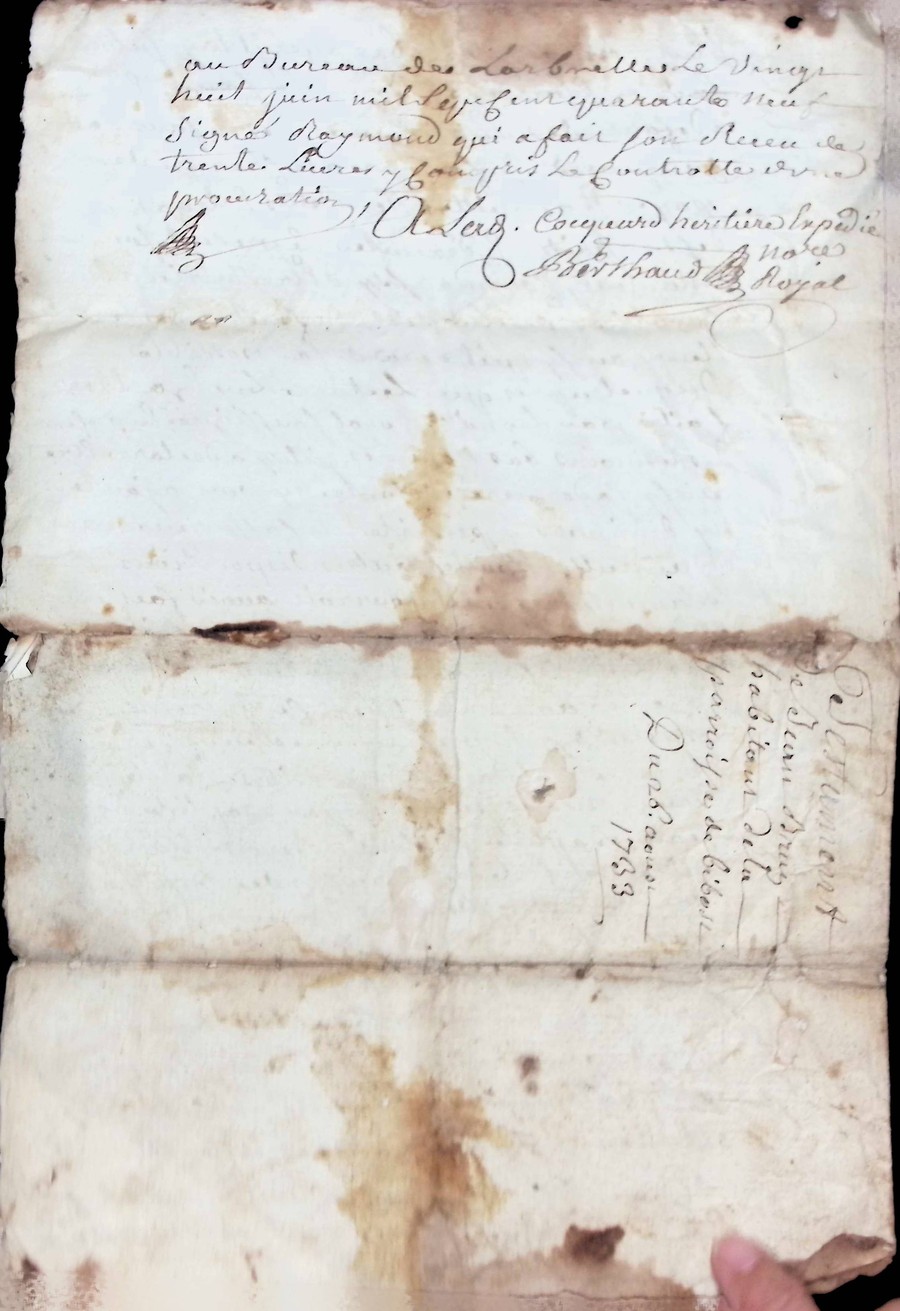 au Bureau des Larbrelles Le Vingt
huit juin mil Sept Cent quarante neuf
Signé Raymond qui a fait son Receu de
trente Livres y Compris Le Controlle d'une
procuration
Coqueard heritière Expedié
Berthaud nore
Royal
Testament
de Jean Bruy
habitant de la
parroisse de bibost
Du 26. aoust
1733